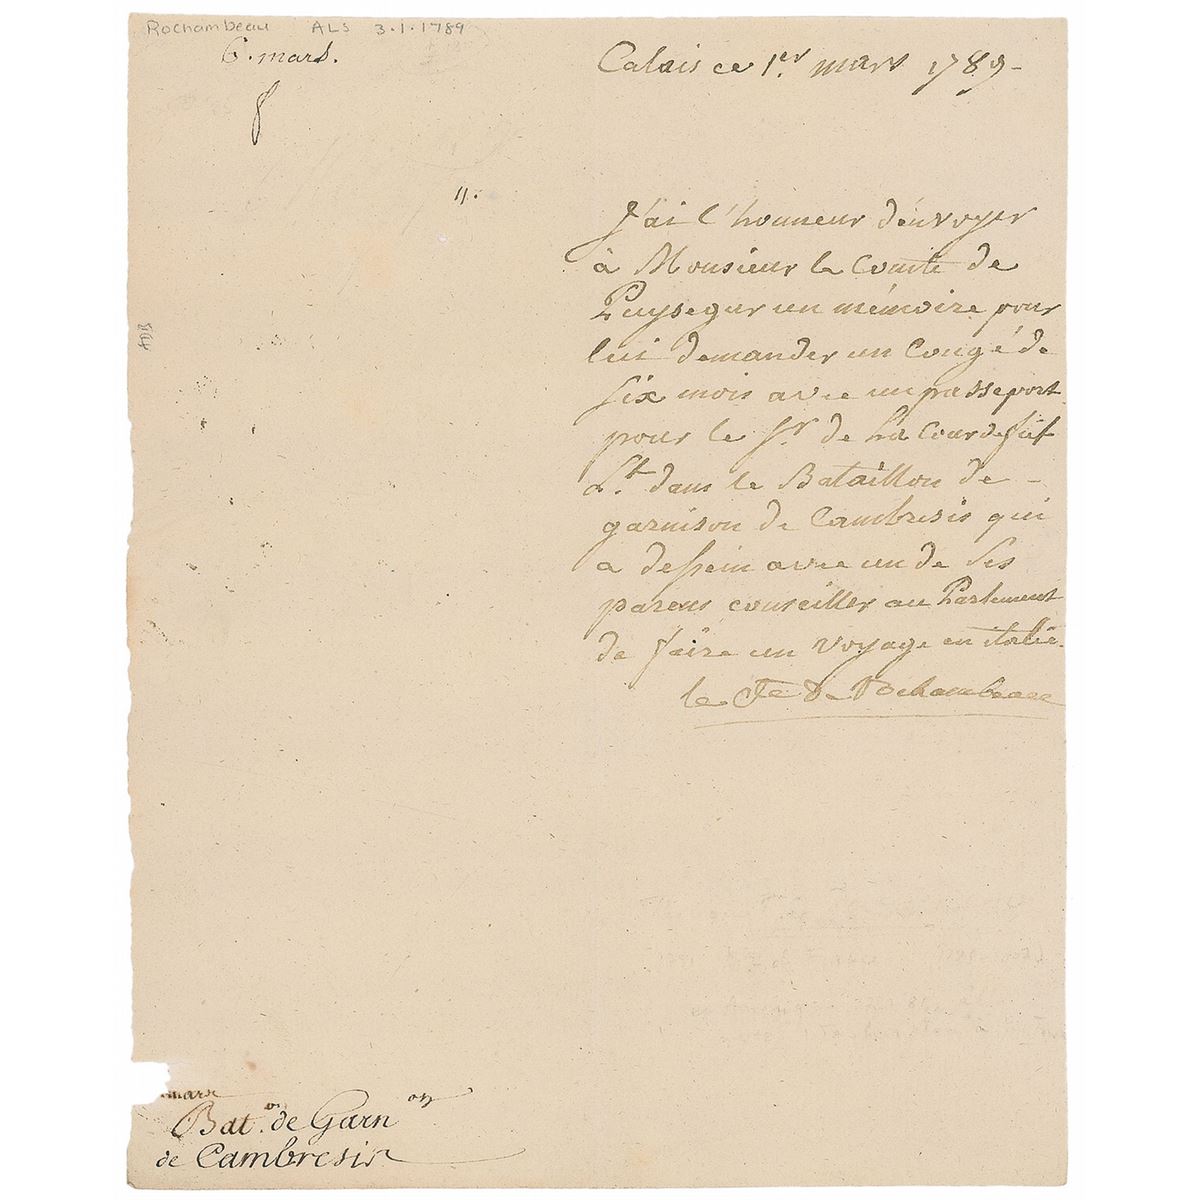 Rochambeau ALS 3.1.1789
6. mars.
Calais ce 1er mars 1789 -
11.
J'ai l'honneur d'envoyer
à Monsieur le Comte de
Puysegur un mémoire pour
lui demander un Congé de
six mois avec un passeport
pour le Sr. de La Cour
Lt. dans le Bataillon de -
garnison de Cambresis qui
a dessein avec un de ses
parens conseiller au Parlement
de faire un voyage en italie.
le Cte De Rochambeau
ADB
mars
Bat.on de Garn on
de Cambresis